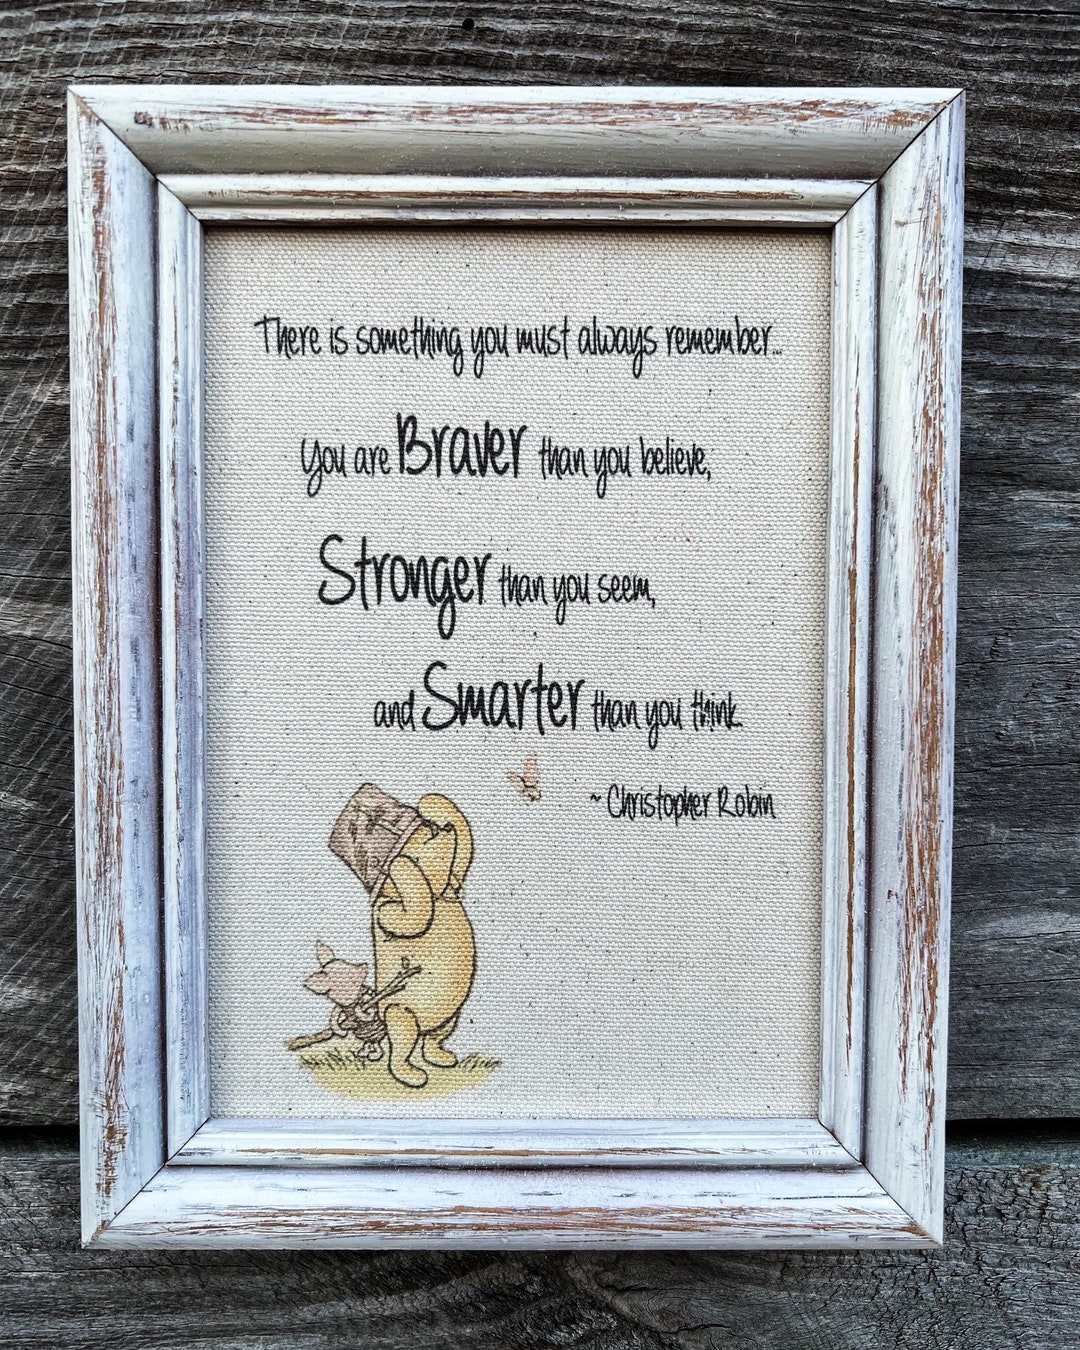 There is something you must always remember...
You are Braver than you believe,
Stronger than you seem,
and Smarter than you think.
~ Christopher Robin